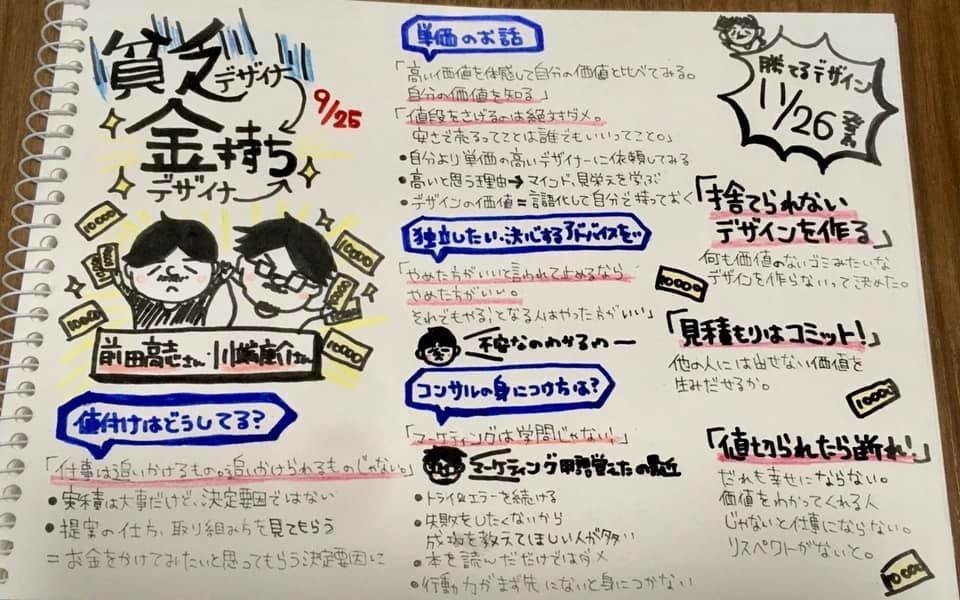 貧乏デザイナー
金持ち
デザイナー
9/25
10000
10000
10000
10000
10000
前田高志さん・川端康介さん
値付けはどうしてる?
「仕事は追いかけるもの。追いかけられるものじゃない。」
・実積は大事だけど、決定要因ではない
・提案の仕方、取り組み方を見てもらう
=お金をかけてみたいと思ってもらう決定要因に
単価のお話
「高い価値を体感して自分の価値と比べてみる。
自分の価値を知る」
「値段をさげるのは絶対ダメ。
安さで売るってことは誰でもいいってこと。」
・自分より単価の高いデザイナーに依頼してみる
・高いと思う理由→マインド、見栄えを学ぶ
・デザインの価値=言語化して自分で持っておく
独立したい・決心するアドバイスを…
「やめた方がいいと言われて止めるなら
やめた方がいい。
それでもやる!となる人はやった方がいい」
不安なのわかるわー
コンサルの身につけ方は?
「マーケティングは学問じゃない!」
マーケティング用語覚えたの最近
・トライ&エラーを続ける
・失敗をしたくないから
成功を教えてほしい人が多い
・本を読んだだけではダメ
・行動力がまず先にないと身につかない
勝てるデザイン
11/26発売
「捨てられない
デザインを作る」
何も価値のないゴミみたいな
デザインを作らないって決めた。
10000
「見積もりはコミット!」
他の人には出せない価値を
生みだせるか。
10000
「値切られたら断れ!」
だれも幸せにならない。
価値をわかってくれる人
じゃないと仕事にならない。
リスペクトがないと。
10000